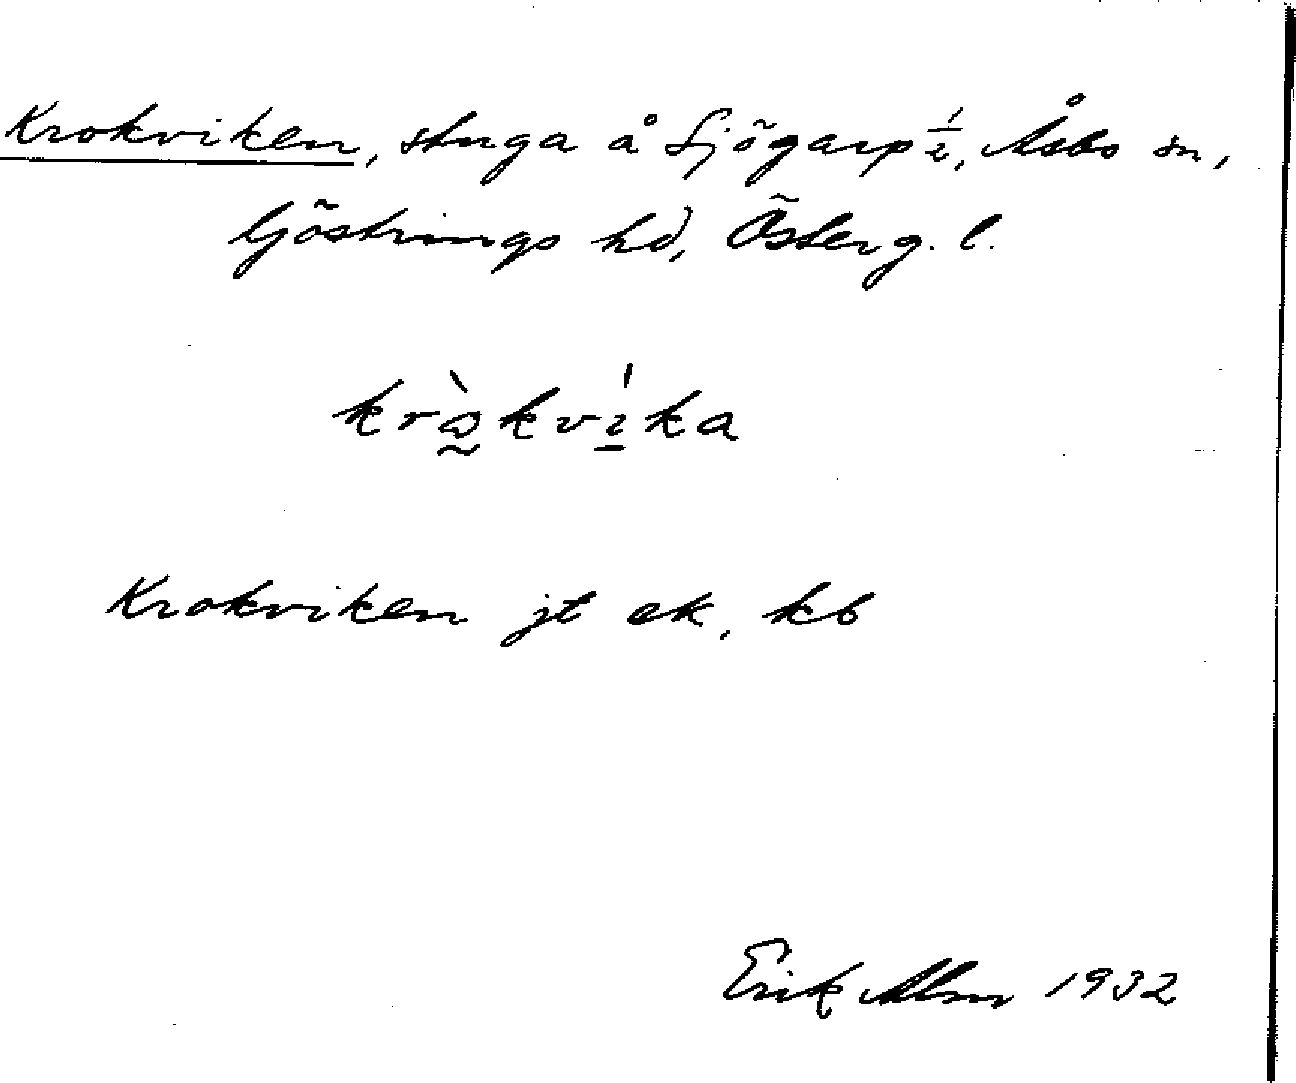 Krokviken, stuga å Sjögarp 1/2, Åsbo sn,
Göstrings hd, Österg. l.
krò̰kví̱ka
Krokviken jt ek, kb
Erik Alm 1932